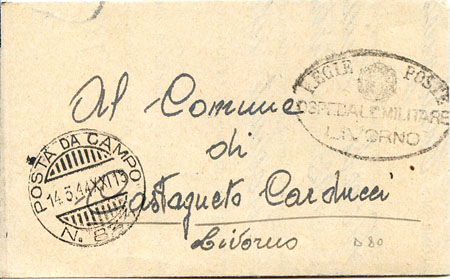 REGIE POSTE
OSPEDALE MILITARE
LIVORNO
Al Comune
di
Castagneto Carducci
Livorno
POSTA DA CAMPO
14.3.44 XXII
D 80